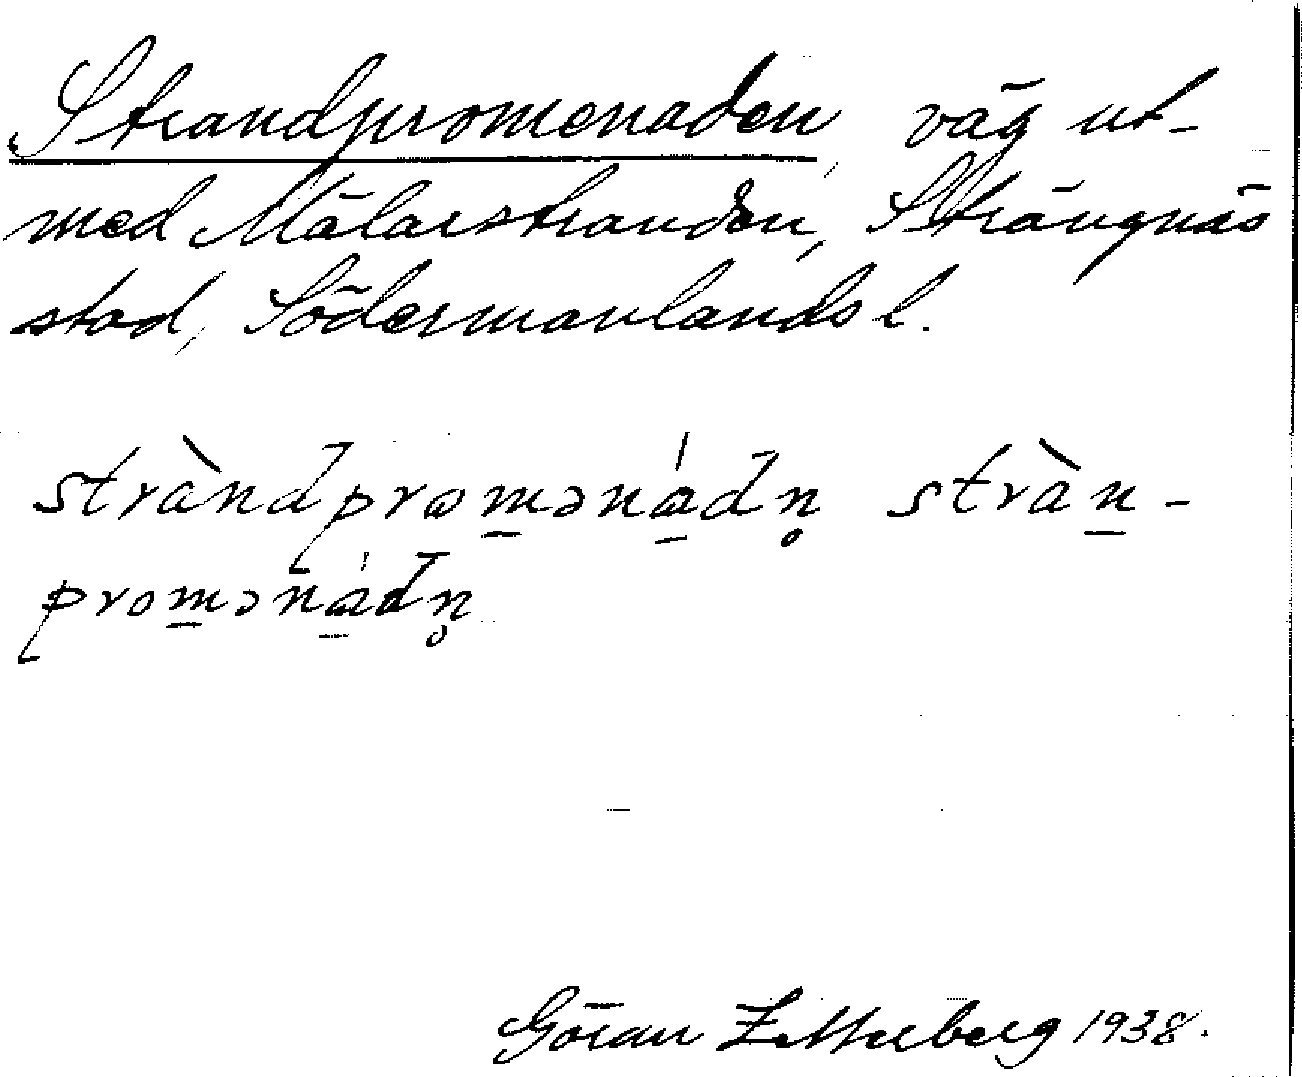 Strandpromenaden, väg ut-
med Mälarstranden, Strängnäs
stad, Södermanlands l.
stràndprom̲əná̲dn̥ stràn̲-
prom̲əná̲dn̥
Göran Zetterberg 1938.